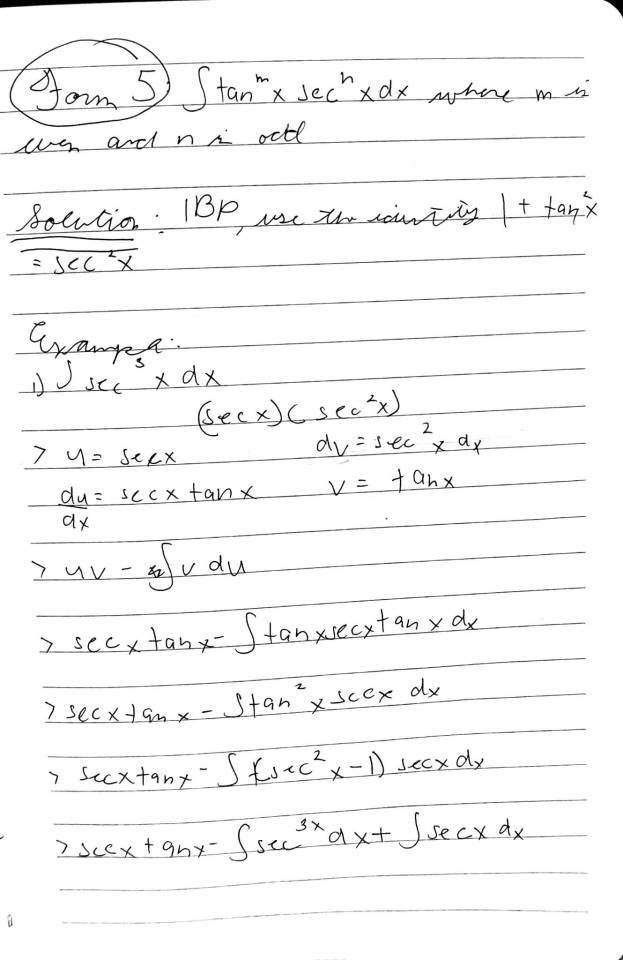 Form 5) ∫ tanᵐ x secⁿ x dx where m is
even and n is odd
Solution: IBP, use the identity 1 + tan²x
= sec²x
Example:
1) ∫ sec³ x dx
(sec x)(sec²x)
> u = sec x dv = sec² x dx
du/dx = sec x tan x v = tan x
> uv - ∫ v du
> sec x tan x - ∫ tan x sec x tan x dx
> sec x tan x - ∫ tan² x sec x dx
> sec x tan x - ∫ (sec² x - 1) sec x dx
> sec x tan x - ∫ sec³ˣ dx + ∫ sec x dx